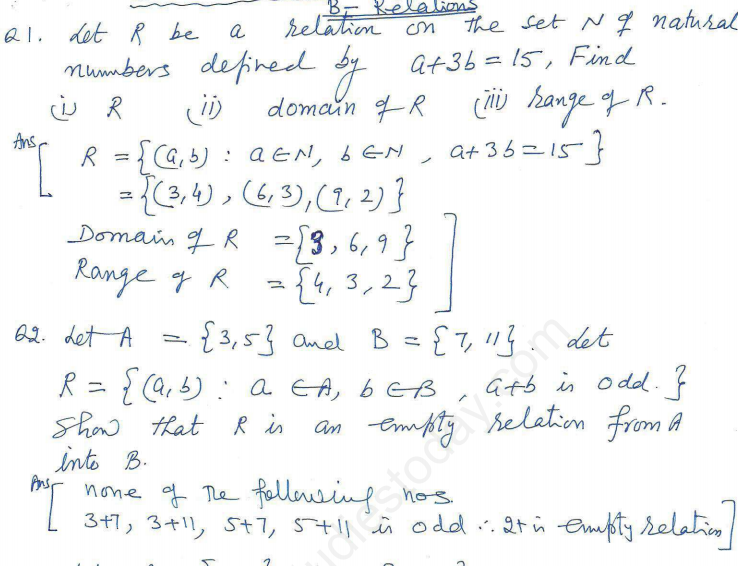 B- Relations
Q1. Let R be a relation on the set N of natural
numbers defined by a+3b = 15, Find
(i) R (ii) domain of R (iii) Range of R.
Ans [ R = {(a,b) : a ∈ N, b ∈ N, a+3b = 15}
= {(3,4), (6,3), (9,2)}
Domain of R = {3, 6, 9}
Range of R = {4, 3, 2} ]
Q2. Let A = {3,5} and B = {7, 11}. Let
R = {(a,b) : a ∈ A, b ∈ B, a+b is odd.}
Show that R is an empty relation from A
into B.
Ans [ none of the following nos.
3+7, 3+11, 5+7, 5+11 is odd ∴ 2t is empty relation]